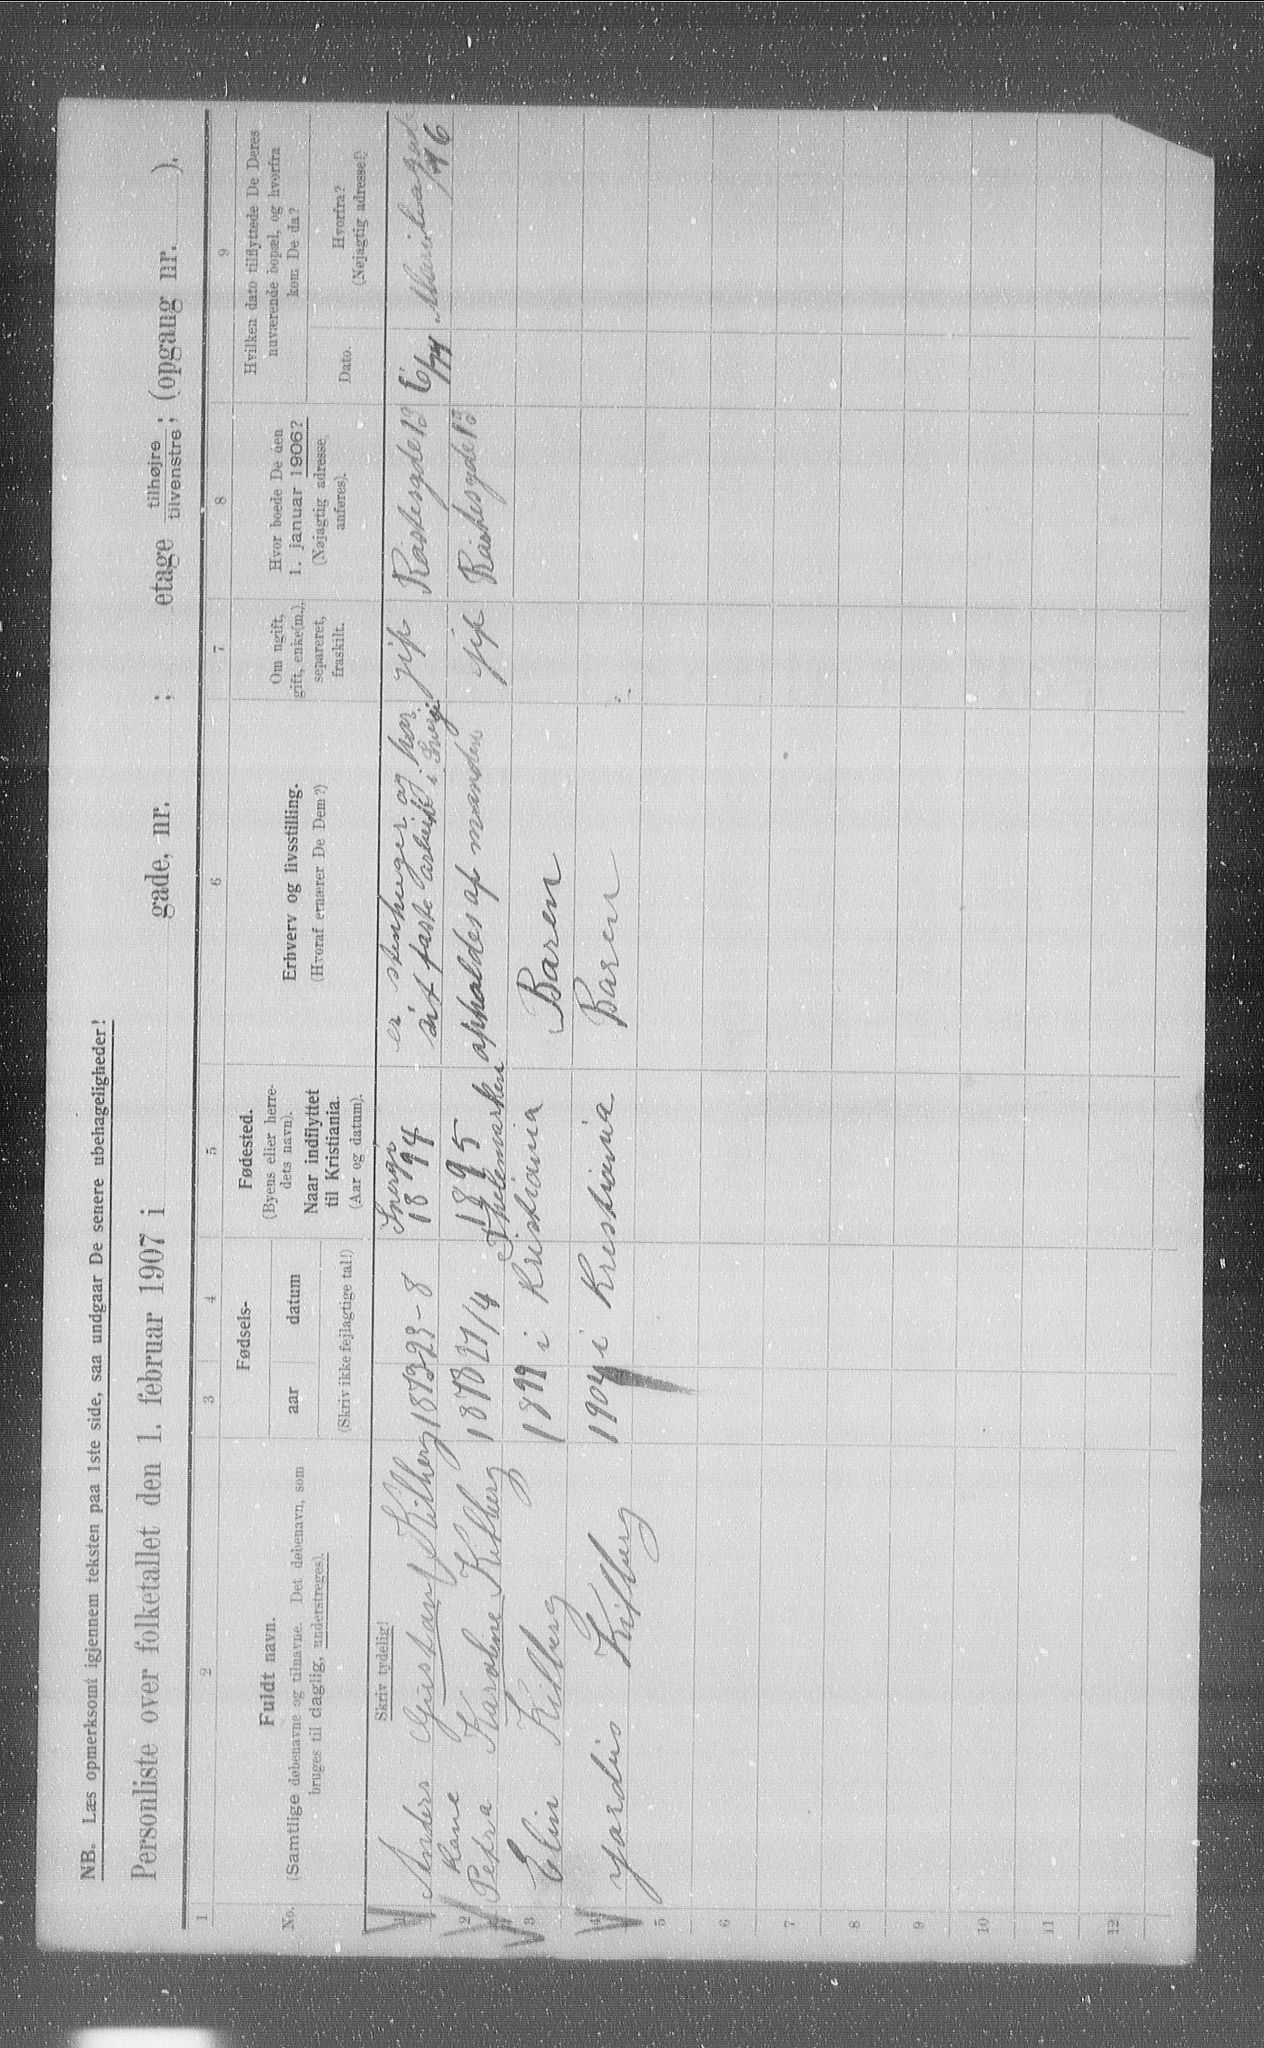 NB. Læs opmerksomt igjennem teksten paa 1ste side, saa undgaar De senere ubehageligheder!
Personliste over folketallet den 1. februar 1907 i gade, nr. ; etage tilhøjre / tilvenstre ; (opgang nr. ).
1 2 3 4 5 6 7 8 9
No.
Fuldt navn.
(Samtlige døbenavne og tilnavne. Det døbenavn, som
bruges til daglig, understreges).
Skriv tydelig!
Fødsels-
aar datum
(Skriv ikke fejlagtige tal!)
Fødested.
(Byens eller herre-
dets navn).
Naar indflyttet
til Kristiania.
(Aar og datum).
Erhverv og livsstilling.
(Hvoraf ernærer De Dem?)
Om ugift,
gift, enke(m.),
separeret,
fraskilt.
Hvor boede De den
1. januar 1906?
(Nøjagtig adresse
anføres).
Hvilken dato tilflyttede De Deres
nuværende bopæl, og hvorfra
kom De da?
Dato.
Hvorfra?
(Nøjagtig adresse!)
1 Anders Gustaf Kilberg 1873 23-8 Sverge 1894 er stenhuger og har sit faste arbeide i Sverge gift
2 Kone Petra Karoline Kilberg 1873 27/4 1895 Thelemarken opholdes af manden gift
3 Elin Kilberg 1899 i Kristiania Baren
4 Kilberg 1904 i Kristiania Baren
5
6
7
8
9
10
11
12